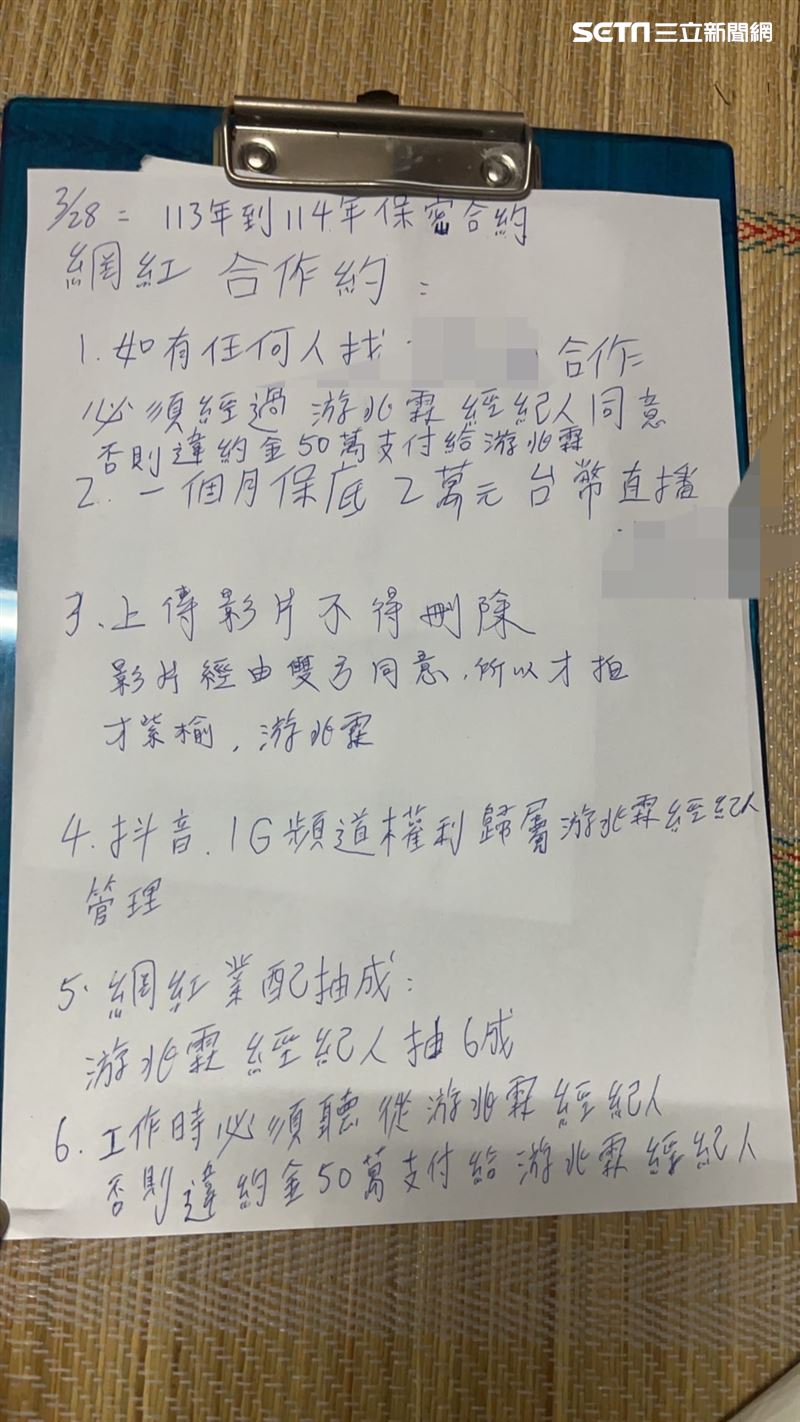 SETN三立新聞網
3/28 = 113年到114年保密合約
網紅 合作約：
1. 如有任何人找 合作
必須經過 游兆霖 經紀人同意
否則違約金50萬支付給游兆霖
2. 一個月保底 2萬元 台幣直播
3、上傳影片不得刪除
影片經由雙方同意，所以才拍
才紫榆，游兆霖
4、抖音、IG頻道權利歸屬游兆霖經紀人
管理
5、網紅業配抽成：
游兆霖 經紀人抽6成
6、工作時必須聽從游兆霖經紀人
否則違約金50萬支付給游兆霖經紀人